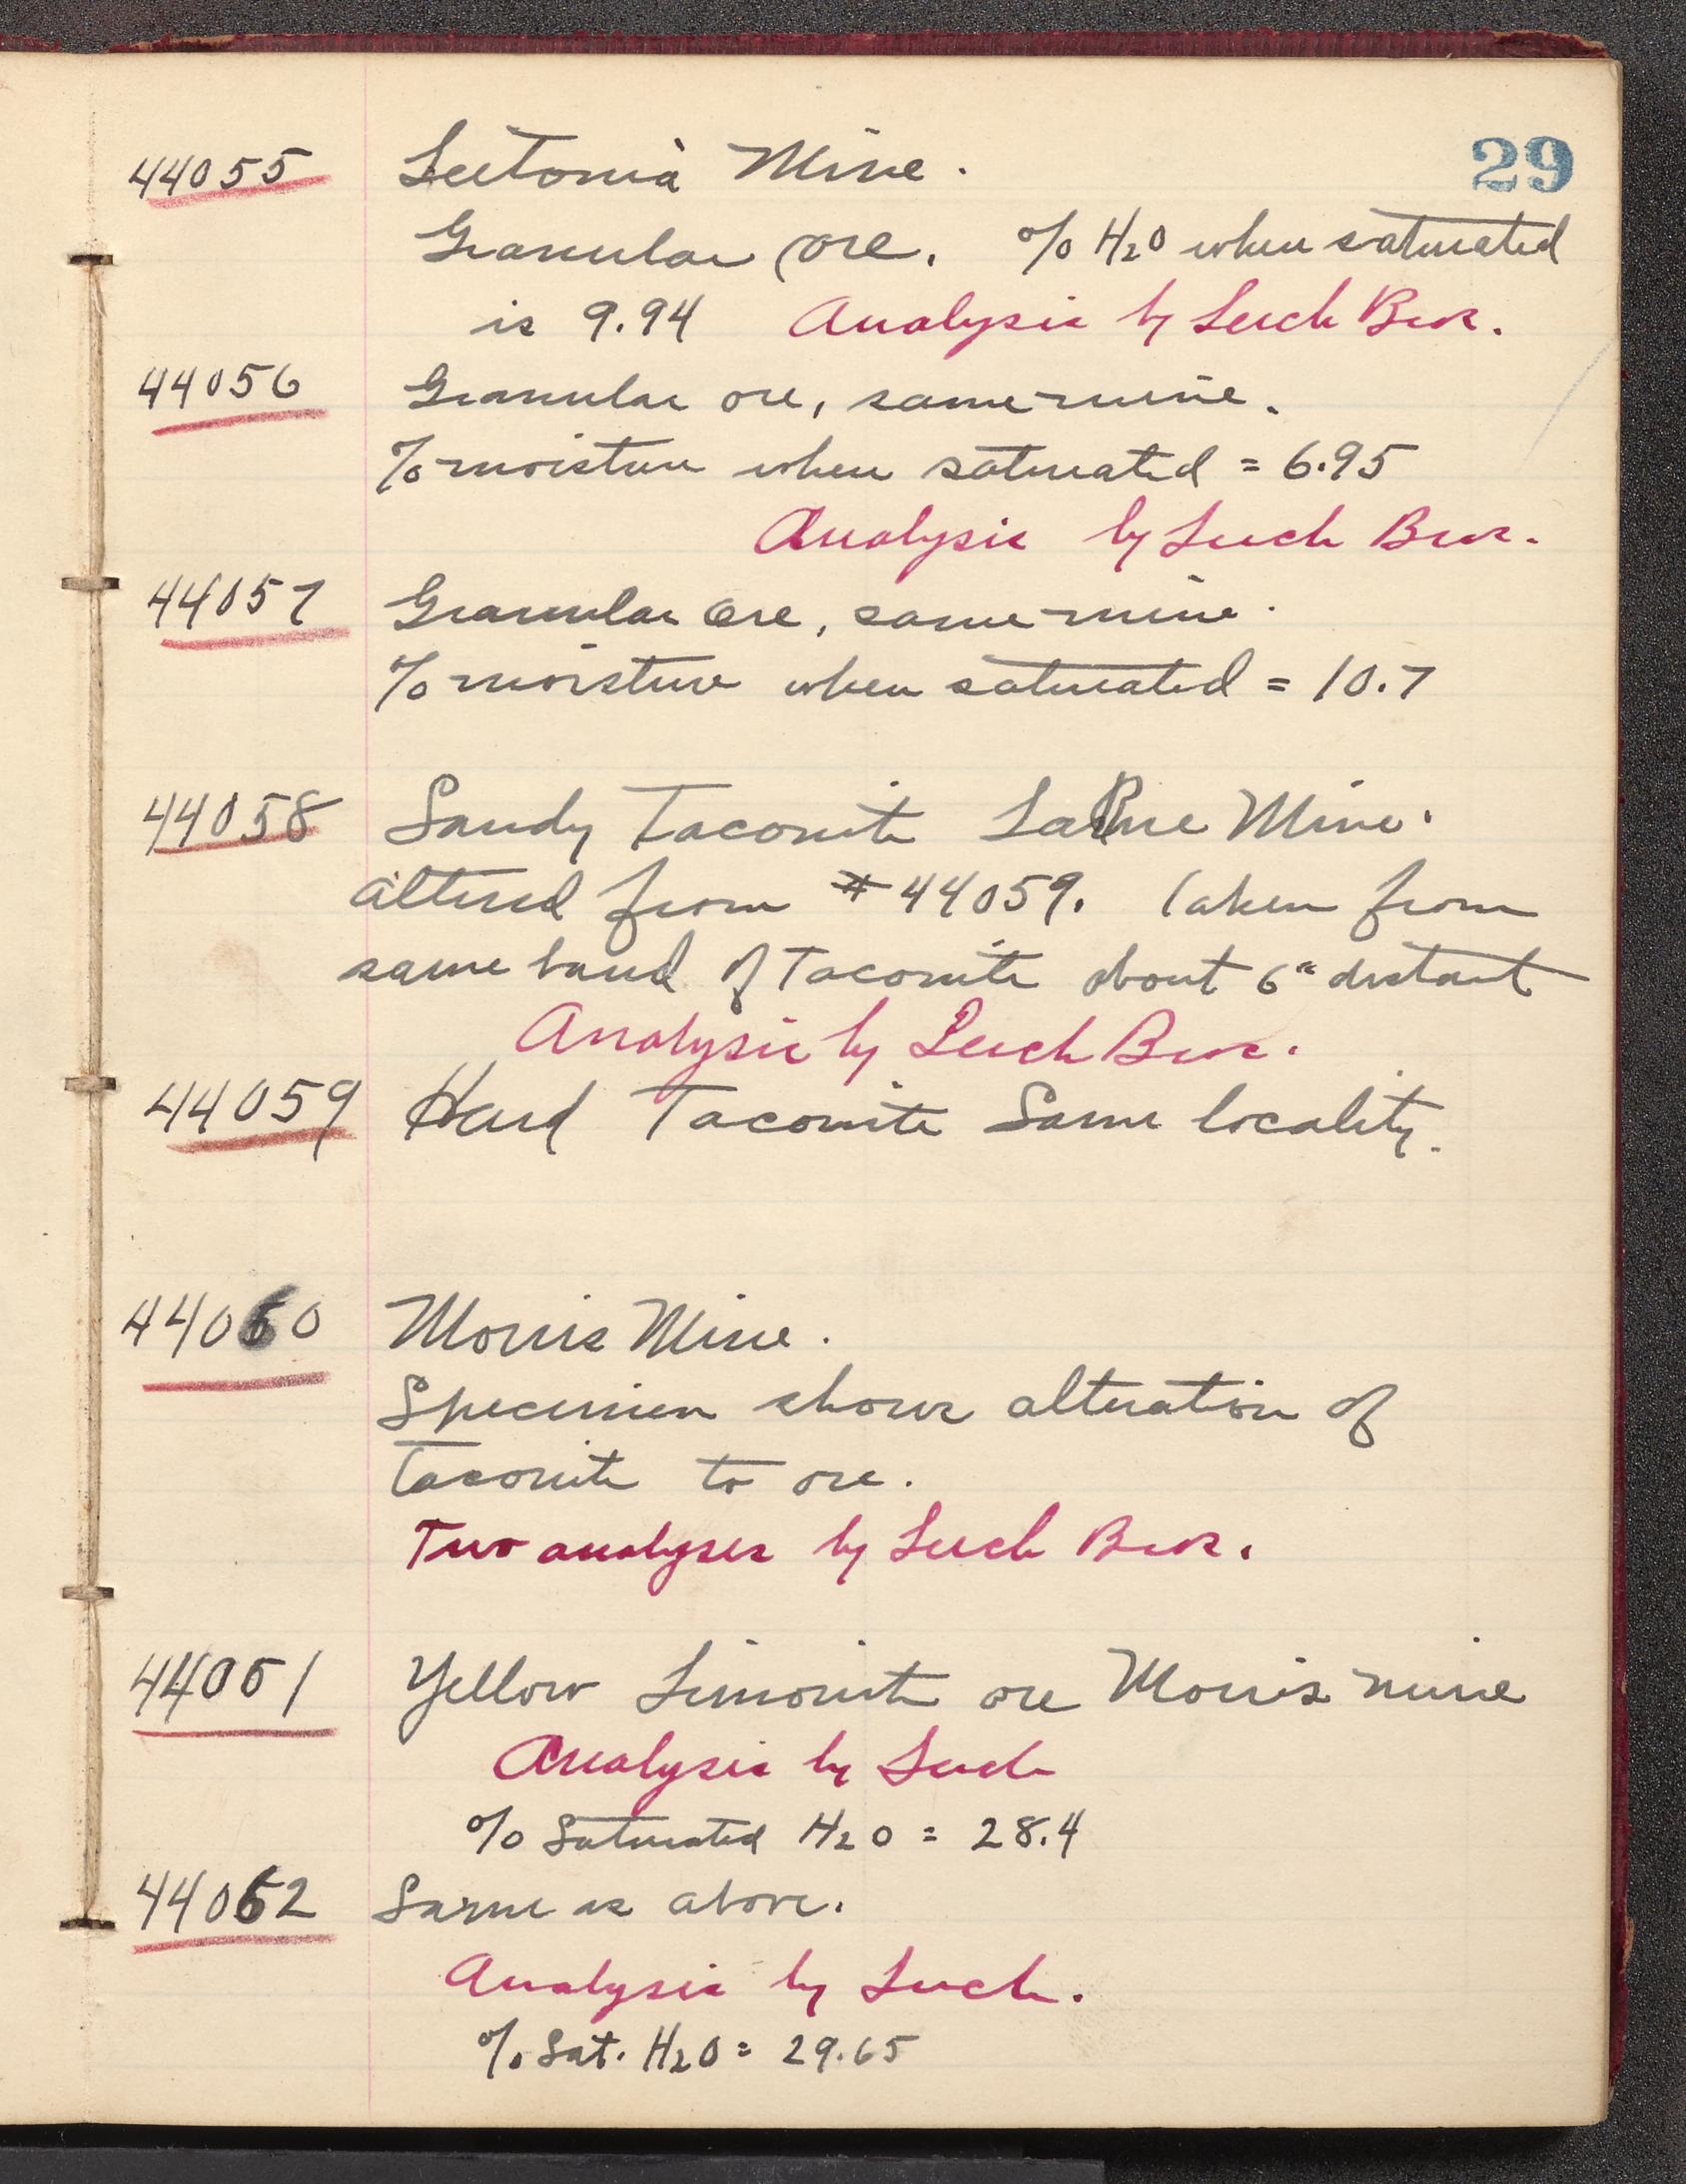 29
44055 Leetonia Mine.
Granular ore. % H2O when saturated
is 9.94 Analysis by Lerch Bros.
44056 Granular ore, same mine.
% moisture when saturated = 6.95
Analysis by Lerch Bros.
44057 Granular ore, same mine.
% moisture when saturated = 10.7
44058 Sandy Taconite LaRue Mine.
altered from #44059. Taken from
same band of Taconite about 6" distant
Analysis by Lerch Bros.
44059 Hard Taconite Same locality.
44060 Morris Mine.
Specimen shows alteration of
Taconite to ore.
Two analyses by Lerch Bros.
44061 Yellow Limonite ore Morris mine
Analysis by Lerch
% Saturated H2O = 28.4
44062 Same as above.
Analysis by Lerch.
% Sat. H2O = 29.65